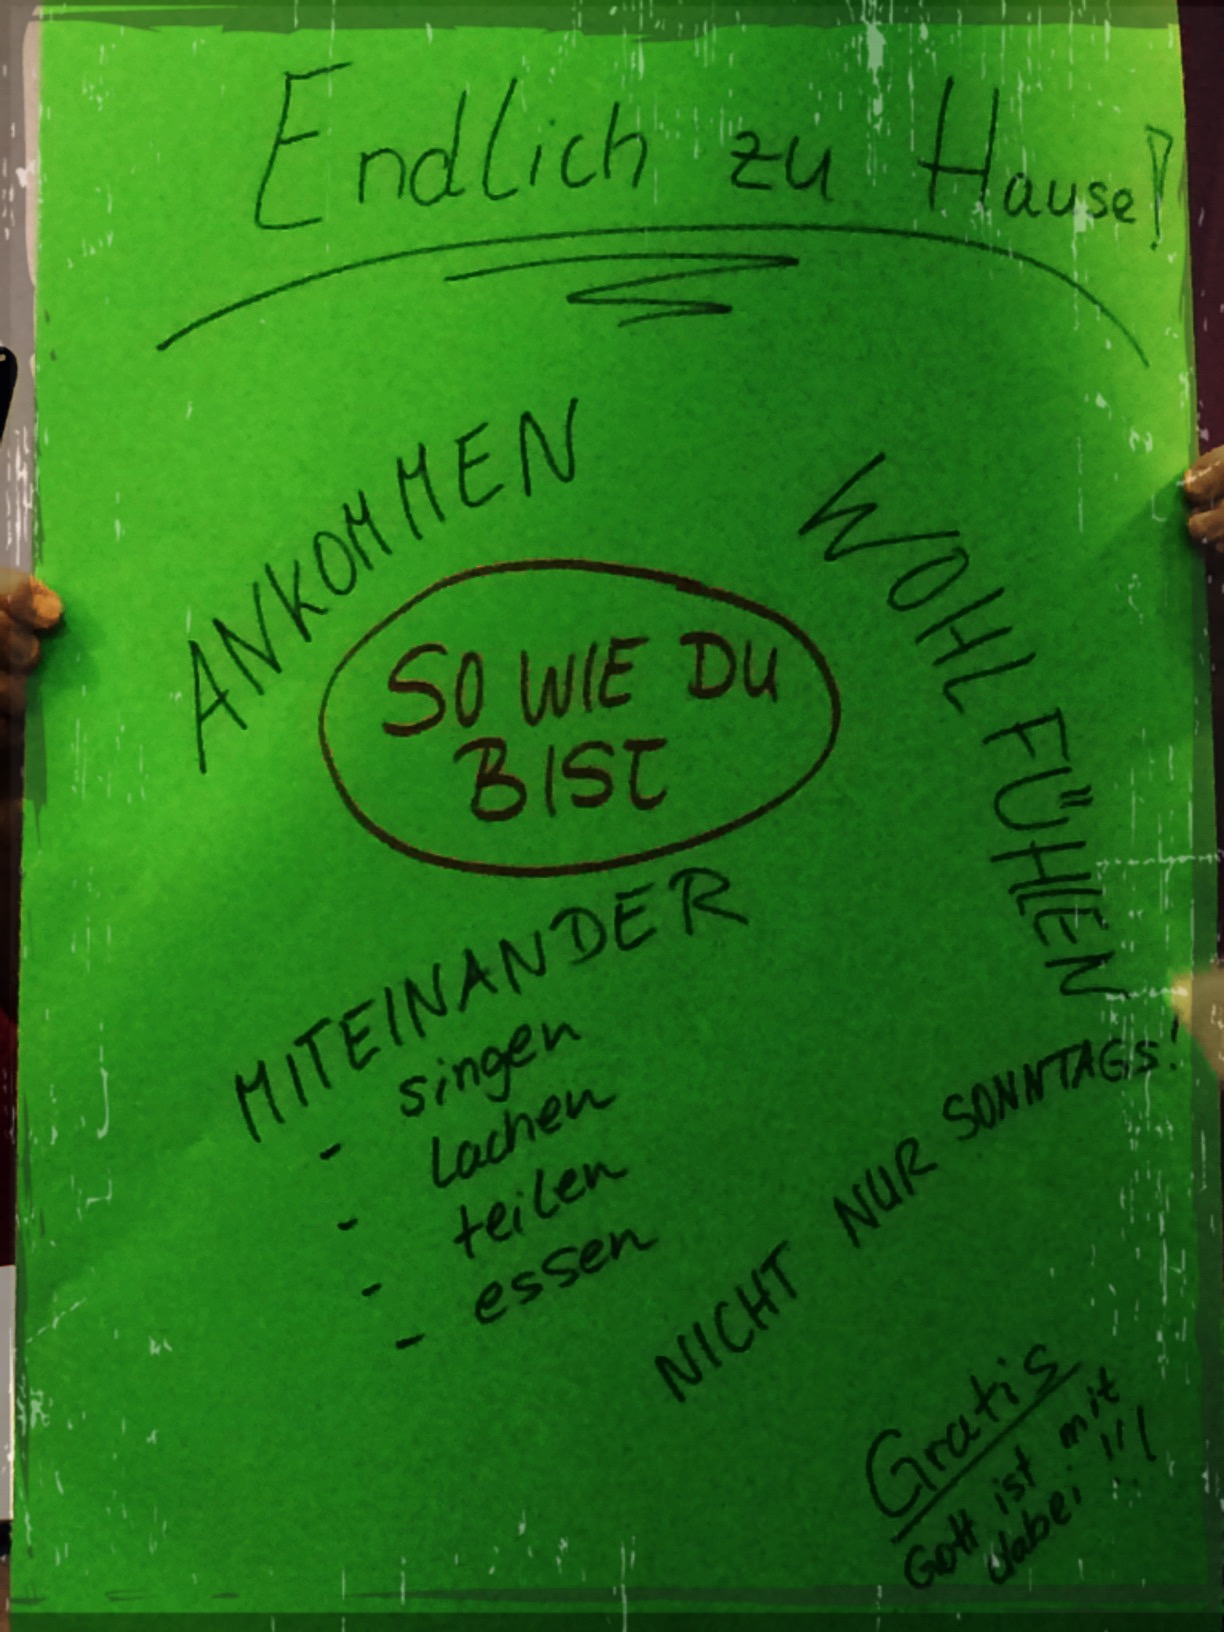 Endlich zu Hause!
ANKOMMEN
WOHLFÜHLEN
SO WIE DU
BIST
MITEINANDER
- singen
- lachen
- teilen
- essen
NICHT NUR SONNTAGS!
Gratis
Gott ist mit
dabei !!!